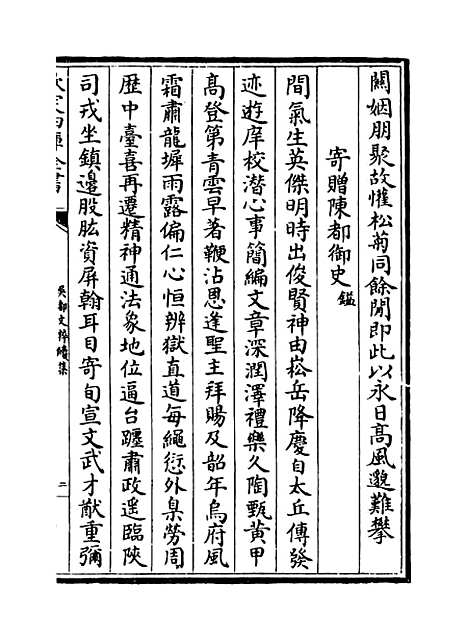 闕姻朋聚故懽松菊同餘閒即此以永日高風邈難攀
寄贈陳都御史鎰
間氣生英傑明時出俊賢神由崧岳降慶自太丘傳發
迹遊庠校潜心事簡編文章深潤澤禮樂久陶甄黄甲
高登第青雲早著鞭沾恩逢聖主拜賜及韶年烏府風
霜肅龍墀雨露偏仁心恒辨獄直道每繩愆外臬勞周
歴中臺喜再遷精神通法象地位逼台躔肅政遥臨陜
司戎坐鎮邊股肱資屏翰耳目寄旬宣文武才猷重彌
欽定四庫全書
吳都文粹續集
二